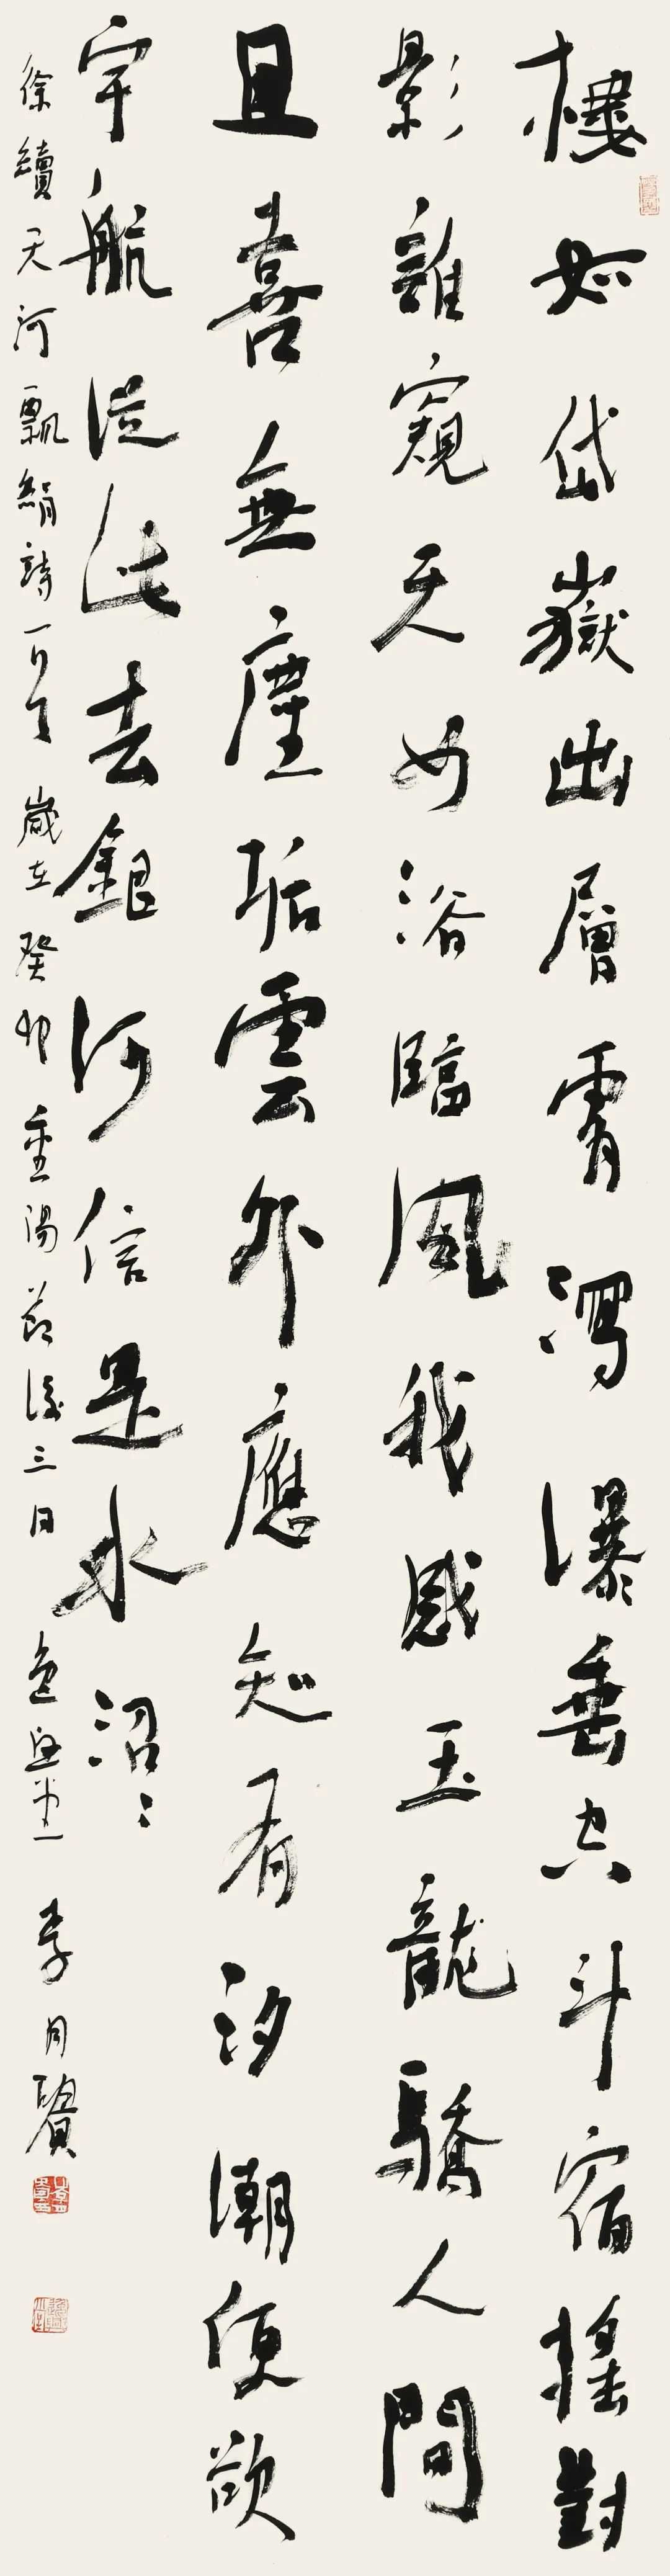 樓如岱嶽出層霄瀉瀑垂空斗宿搖對
影誰窺天女浴臨風我感玉龍驕人間
且喜無塵垢雲外應知有汐潮便欲
宇航從此去銀河信是水沼〻
徐續天河飄絹詩一首 歲在癸卯重陽節後三日 李月賢